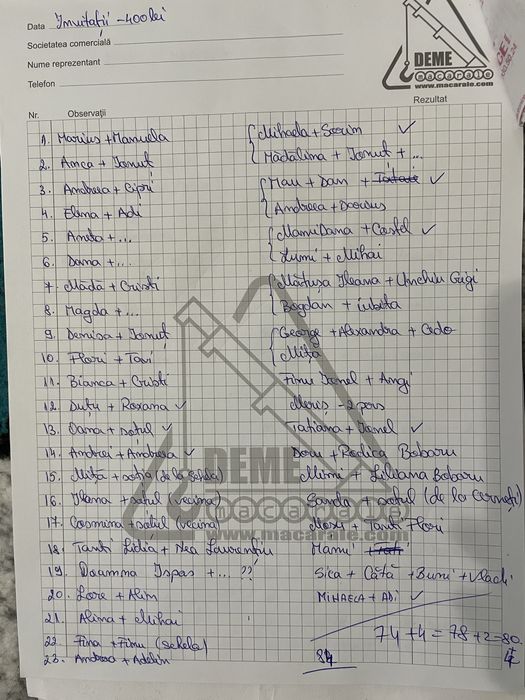 Data Invitații -400 lei
Societatea comercială
Nume reprezentant
Telefon
DEME
macarale
www.macarale.com
Nr. Observații Rezultat
1. Marius + Manuela
2. Anca + Ionuț
3. Andreea + Cipri
4. Elena + Adi
5. Aneta + ...
6. Dana + ...
7. Mădă + Cristi
8. Magda + ...
9. Denisa + Ionuț
10. Flori + Tavi
11. Bianca + Cristi
12. Duțu + Roxana ✓
13. Oana + soțul ✓
14. Andrei + Andreea ✓
15. Mița + soția (de la schela)
16. Ileana + soțul (vecina)
17. Cosmina + soțul (vecina)
18. Tanti Lidia + Nea Laurențiu
19. Doamna Ispas + ... ??
20. Lore + Alin
21. Alina + Mihai
22. Fina + Finu (schela)
23. Andreea + Adelin
Mihaela + Sorin ✓
Mădălina + Ionuț + ...
Dan +
Andreea + Darius
Manu Dana + Costel ✓
Lumi + Mihai
Mătușa Ileana + Unchiu Gigi
Bogdan + iubita
George + Alexandra +
Mița
Finu Ionel + Angi
- 2 pers
Tatiana + Ionel ✓
Doru + Rodica Bobaru
Mimi + Liliana Bobaru
Sanda + soțul (de la Cornești)
Moșu + Tanti Flori
Mamu
Sica + Cătă + Buni + Vladi
MIHAELA + ADI ✓
74 + 4 = 78 + 2 = 80
+
4
84
DEME
macarale
www.macarale.com